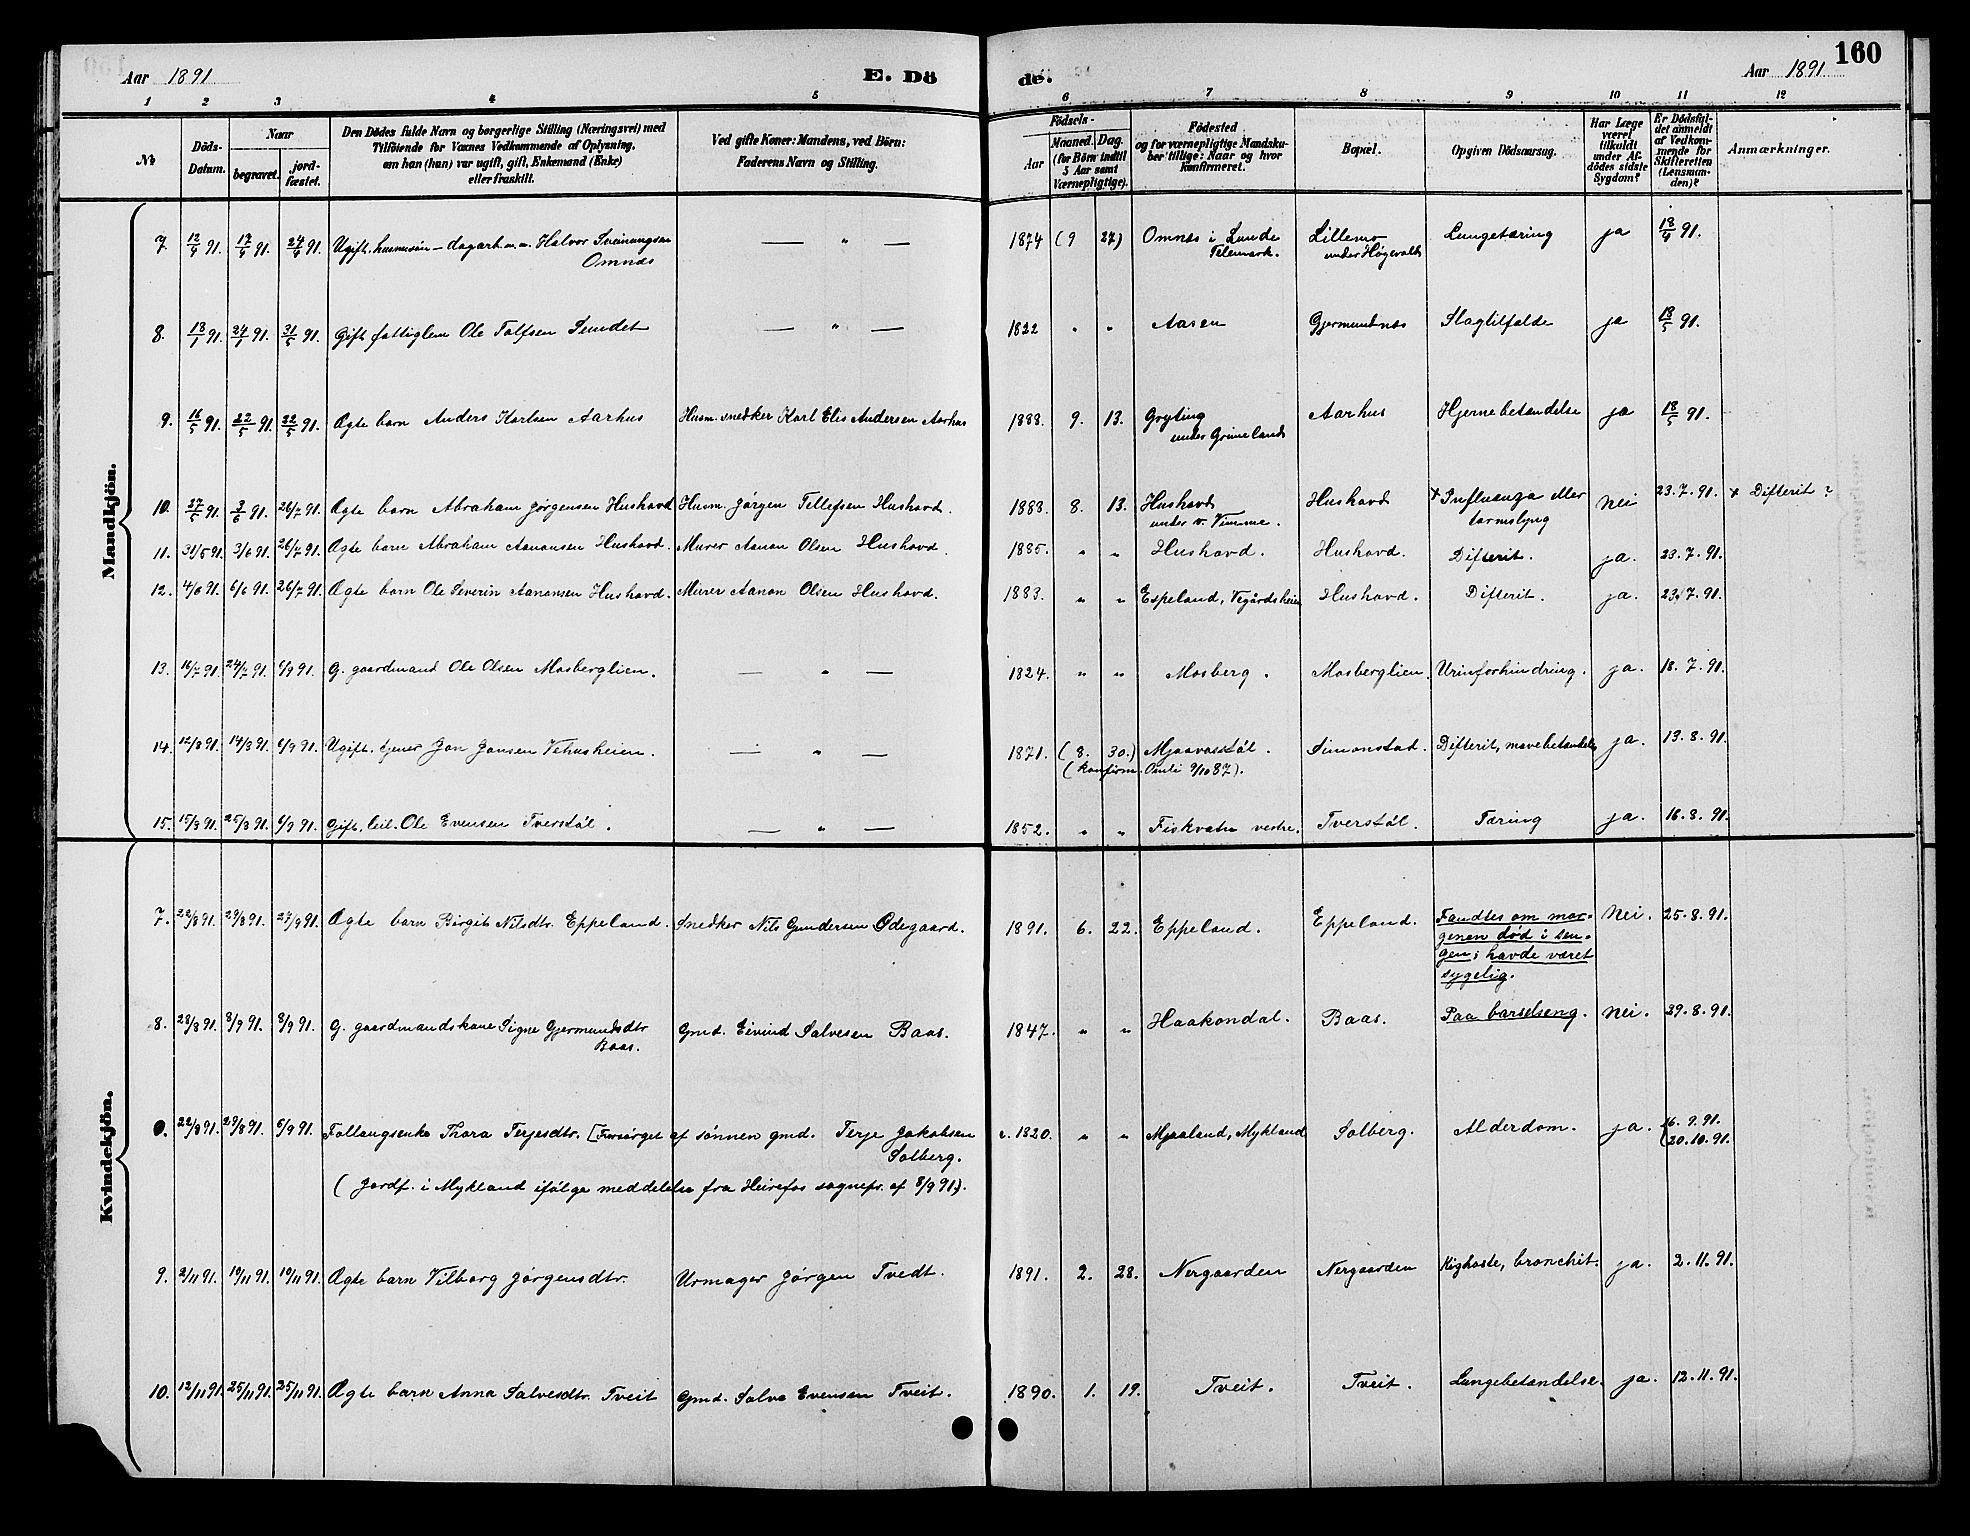 Aar 1891 E. Dö de. Aar 1891 160
1 2 3 4 5 6 7 8 9 10 11 12
No
Döds-Datum.
Naar
begravet.
jordfæstet.
Den Dödes fulde Navn og borgerlige Stilling (Næringsvei) med
Tilföiende for Voxnes Vedkommende af Oplysning,
om han (hun) var ugift, gift, Enkemand (Enke)
eller fraskilt.
Ved gifte Koner: Mandens, ved Börn:
Faderens Navn og Stilling.
Födsels-
Aar
Maaned. Dag.
(for Börn indtil
5 Aar samt
Værnepligtige).
Födested
og for værnepligtige Mandsku-
ber tillige: Naar og hvor
konfirmeret.
Bopæl.
Opgiven Dödsaarsag.
Har Læge
været
tilkaldt
under Af-
dödes sidste
Sygdom?
Er Dödsfal-
det anmeldt
af Vedkom-
mende for
Skifteretten
(Lensman-
den)?
Anmærkninger.
Mandkjön.
7. 12/4 91. 17/4 91. 24/4 91. Ugift. husmusön – dagarb. m.m. Halvor Sveinungsen — " — 1874 (9 27) Omnæs i Lunde Lillemo Lungetæring ja 18/4 91.
Omnæs Telemark. under Høgevolds
8. 18/1 91. 24/1 91. 31/5 91. Gift fattiglem Ole Tolfsen Sundet — " — 1822 " " Aasen Gjermundnæs Slagtilfælde ja 18/5 91.
9. 16/5 91. 22/5 91. 22/5 91. Ægte barn Anders Karlsen Aarhus Husm. snedker Karl Elis Andersen Aarhus 1888. 9. 13. Gryting Aarhus Hjernebetændelse ja 18/5 91.
under Grimelands
10. 27/5 91. 3/6 91. 26/7 91. Ægte barn Abraham Jørgensen Hushovd Husm. Jørgen Tellefsen Hushovd. 1883. 8. 13. Hushovd Hushovd + Influenza eller nei 23.7.91. + Difterit?
under v. Vimme.
11. 31/5 91. 3/6 91. 26/7 91. Ægte barn Abraham Aanonsen Hushovd. Murer Aanon Olsen Hushovd. 1885. " " Hushovd. Hushovd. Difterit. ja. 23.7.91.
12. 4/6 91. 6/6 91. 26/7 91. Ægte barn Ole Severin Aanonsen Hushovd. Murer Aanon Olsen Hushovd. 1883. " " Espeland, Vegårdsheien Hushovd. Difterit. ja. 23.7.91.
13. 16/7 91. 24/7 91. 6/9 91. G. gaardmand Ole Olsen Mosberglien. — " — 1824. " " Mosberg. Mosberglien. Urinforhindring. ja. 18.7.91.
14. 12/8 91. 14/8 91. 6/9 91. Ugift. tjener Jon Jonsen Vehusheien. — " — 1871. (8. 30.) Mjaavasstöl. Simonstad. Difterit, mavebetændelse ja. 13.8.91.
(konfirm. Omli 9/10 87).
15. 15/8 91. 25/8 91. 6/9 91. Gift. leil. Ole Evensen Tverstöl. — " — 1852. " " Fiskvatn vestre. Tverstöl. Tæring ja. 16.8.91.
Kvindekjön.
7. 22/8 91. 29/8 91. 27/9 91. Ægte barn Birgit Nilsdtr. Eppeland. Snedker Nils Gundersen Ødegaard. 1891. 6. 22. Eppeland. Eppeland. Fandtes om mor- nei. 25.8.91.
genen død i sen-
gen; havde været
sygelig.
8. 28/8 91. 8/9 91. 8/9 91. G. gaardmandskone Signe Gjermundsdtr Gmd. Eivind Salvesen Baas. 1847. " " Haakondal. Baas. Paa barselseng. nei. 29.8.91.
Baas.
22/8 91. 29/8 91. 6/9 91. Follaugsenke Thora Terjesdtr. [Forsörget af sønnen gmd. Terje Jakobsen 1820. " " Mjaaland, Mykland Solberg. Alderdom. ja. 16.9.91.
Solberg. (20.10.91.
(Jordf. i Mykland ifølge meddelelse fra Heirefos sognepr. af 8/9 91).
9. 2/11 91. 19/11 91. 19/11 91. Ægte barn Vilborg Jørgensdtr. Urmager Jörgen Tvedt. 1891. 2. 28. Nergaarden Nergaarden Kighoste, bronchit. ja. 2.11.91.
10. 12/11 91. 25/11 91. 25/11 91. Ægte barn Anna Salvesdtr. Tveit Gmd. Salve Evensen Tveit. 1890. 1. 19. Tveit. Tveit. Lungebetændelse. ja. 12.11.91.